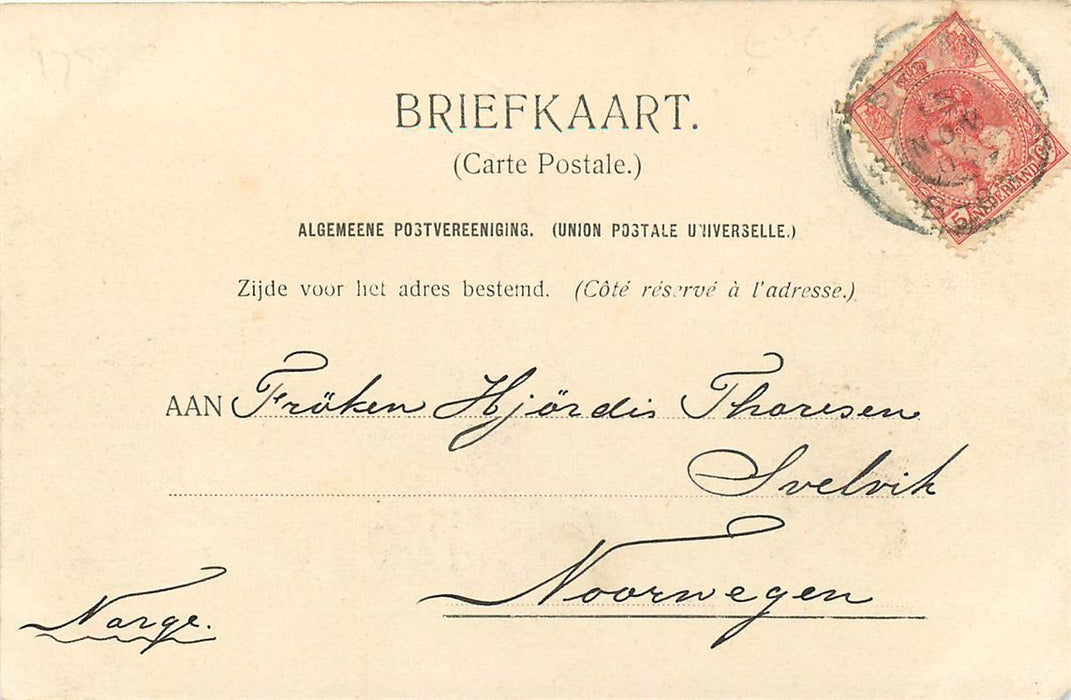 BRIEFKAART.
(Carte Postale.)
ALGEMEENE POSTVEREENIGING. (UNION POSTALE UNIVERSELLE.)
Zijde voor het adres bestemd. (Côté réservé à l'adresse.)
AAN Fröken Hjördis Thoresen
Svelvik
Noorwegen
Norge.
5 NEDERLAND
NOV